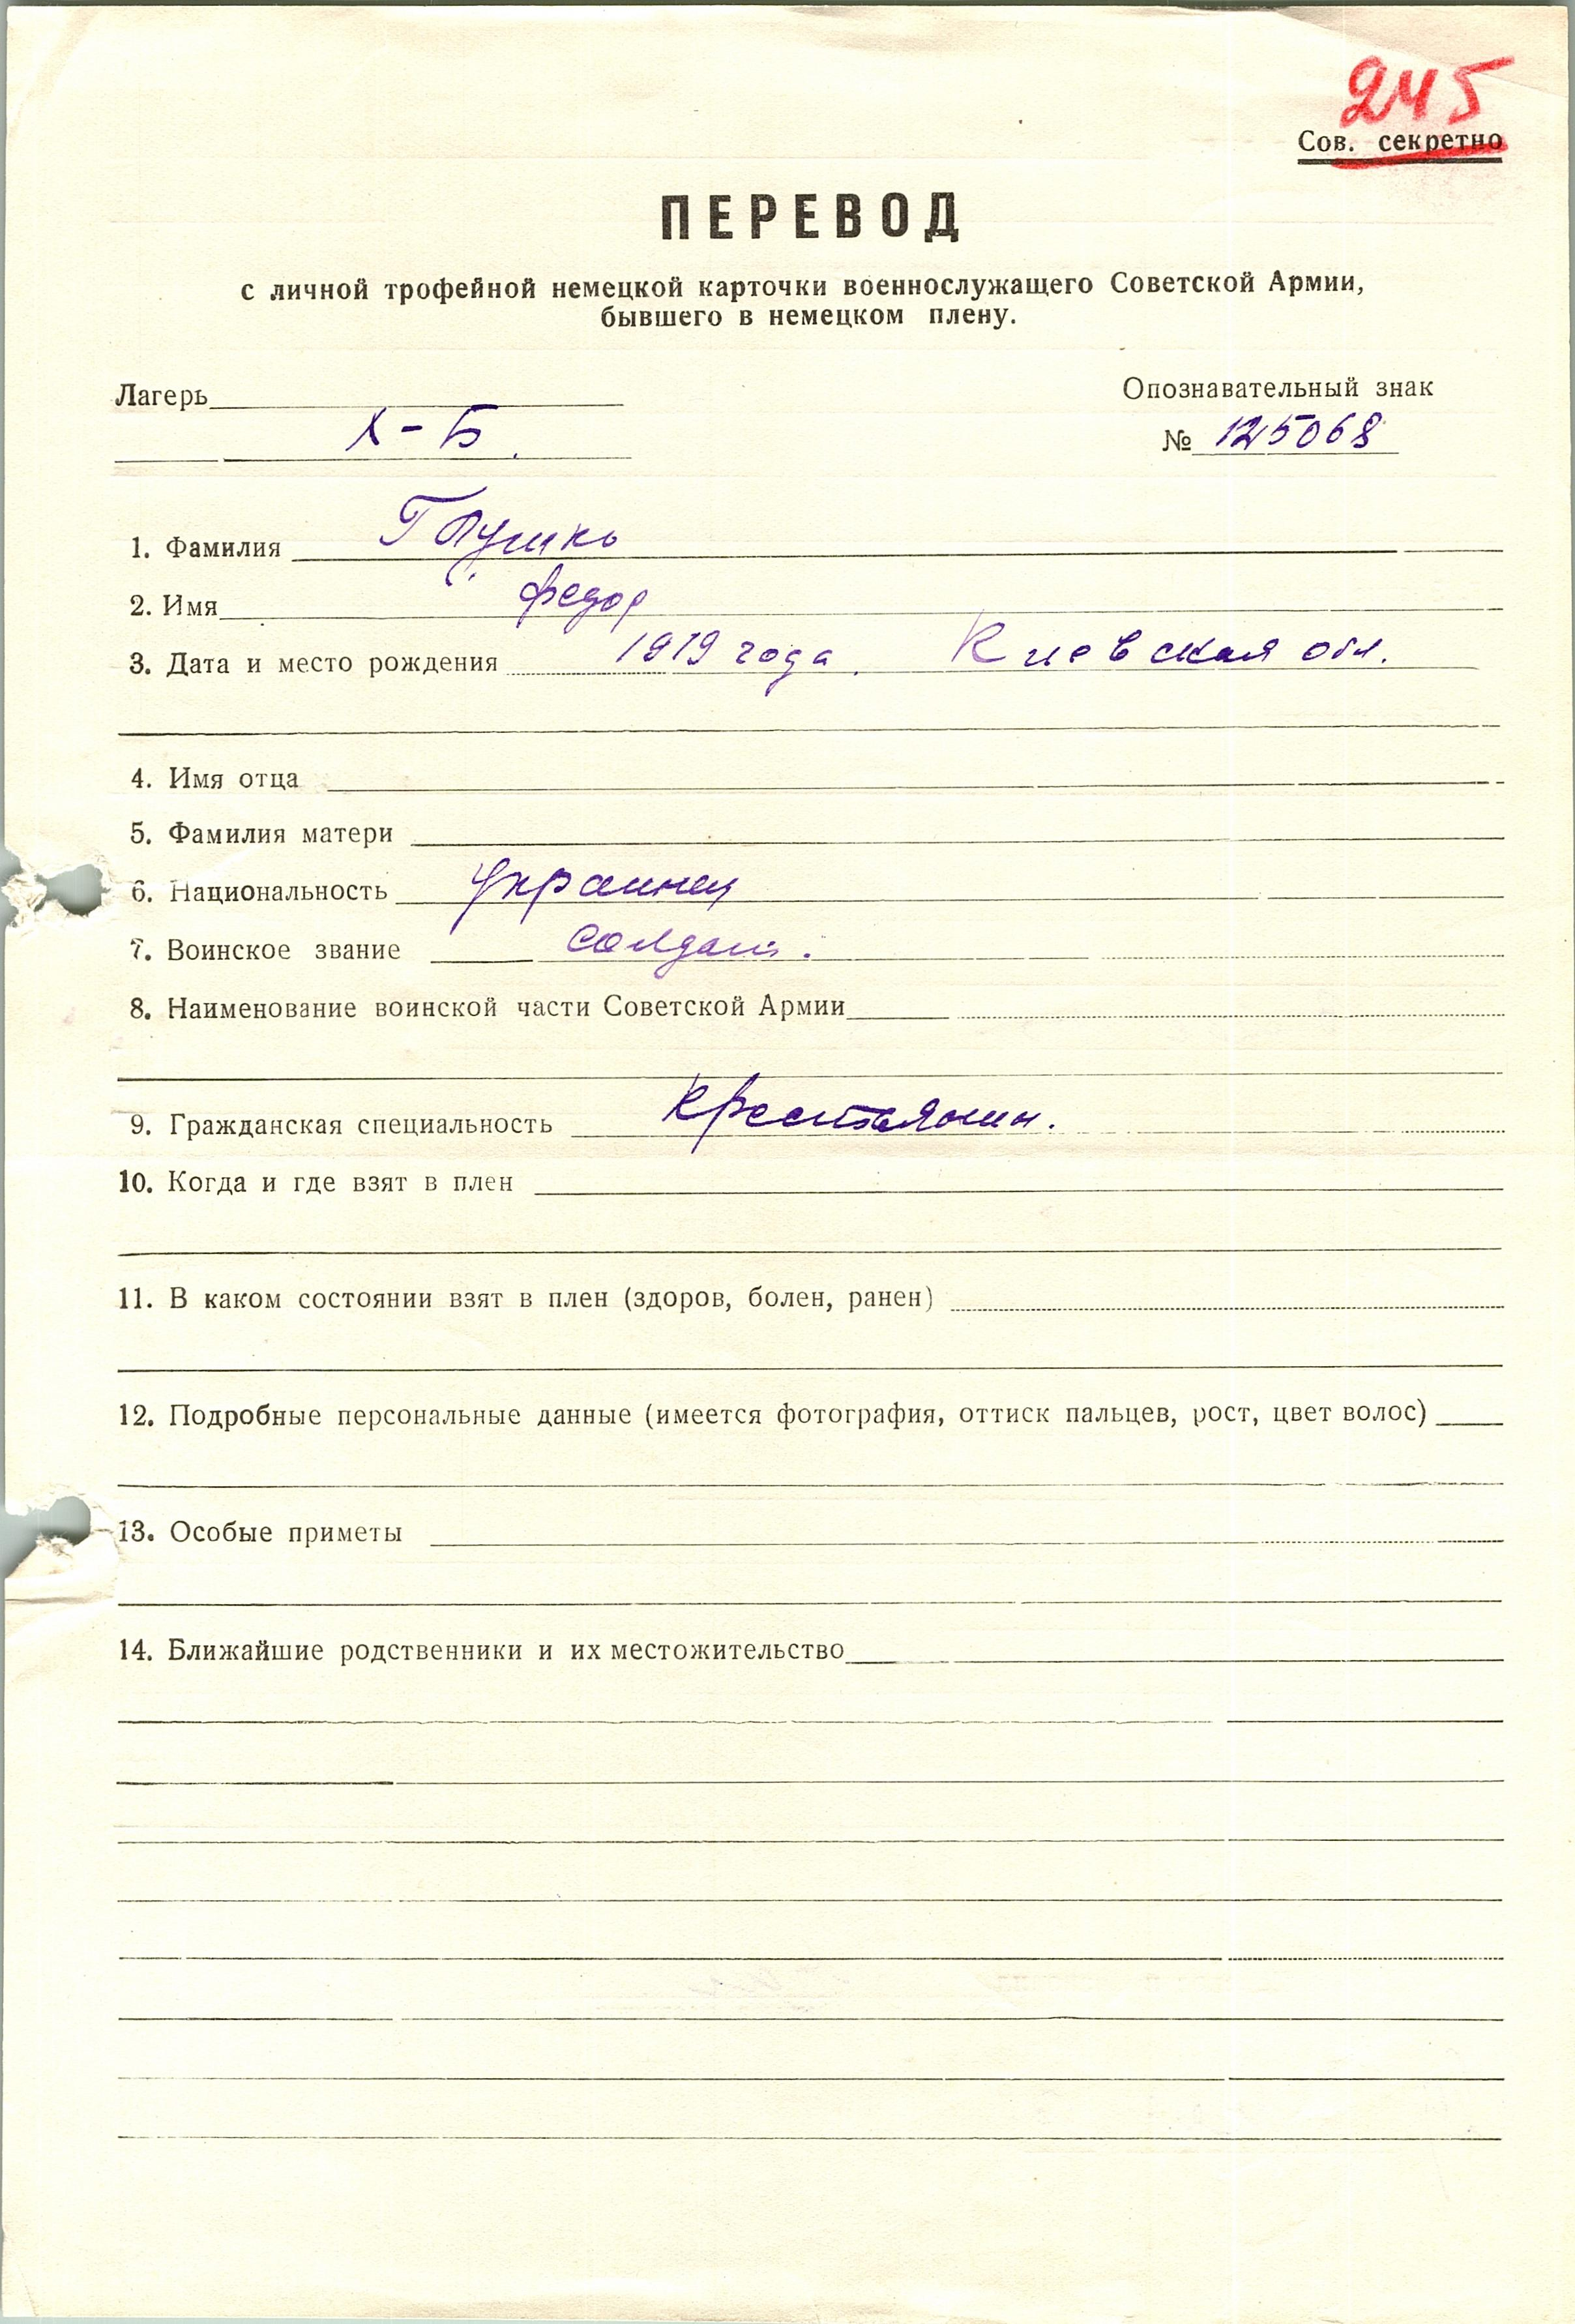 245
Сов. секретно
ПЕРЕВОД
с личной трофейной немецкой карточки военнослужащего Советской Армии,
бывшего в немецком плену.
Лагерь
Опознавательный знак
X-Б.
№ 125068
1. Фамилия
2. Имя Федор
3. Дата и место рождения 1919 года. Киевская обл.
4. Имя отца
5. Фамилия матери
6. Национальность Украинец
7. Воинское звание Солдат.
8. Наименование воинской части Советской Армии
9. Гражданская специальность Крестьянин.
10. Когда и где взят в плен
11. В каком состоянии взят в плен (здоров, болен, ранен)
12. Подробные персональные данные (имеется фотография, оттиск пальцев, рост, цвет волос)
13. Особые приметы
14. Ближайшие родственники и их местожительство